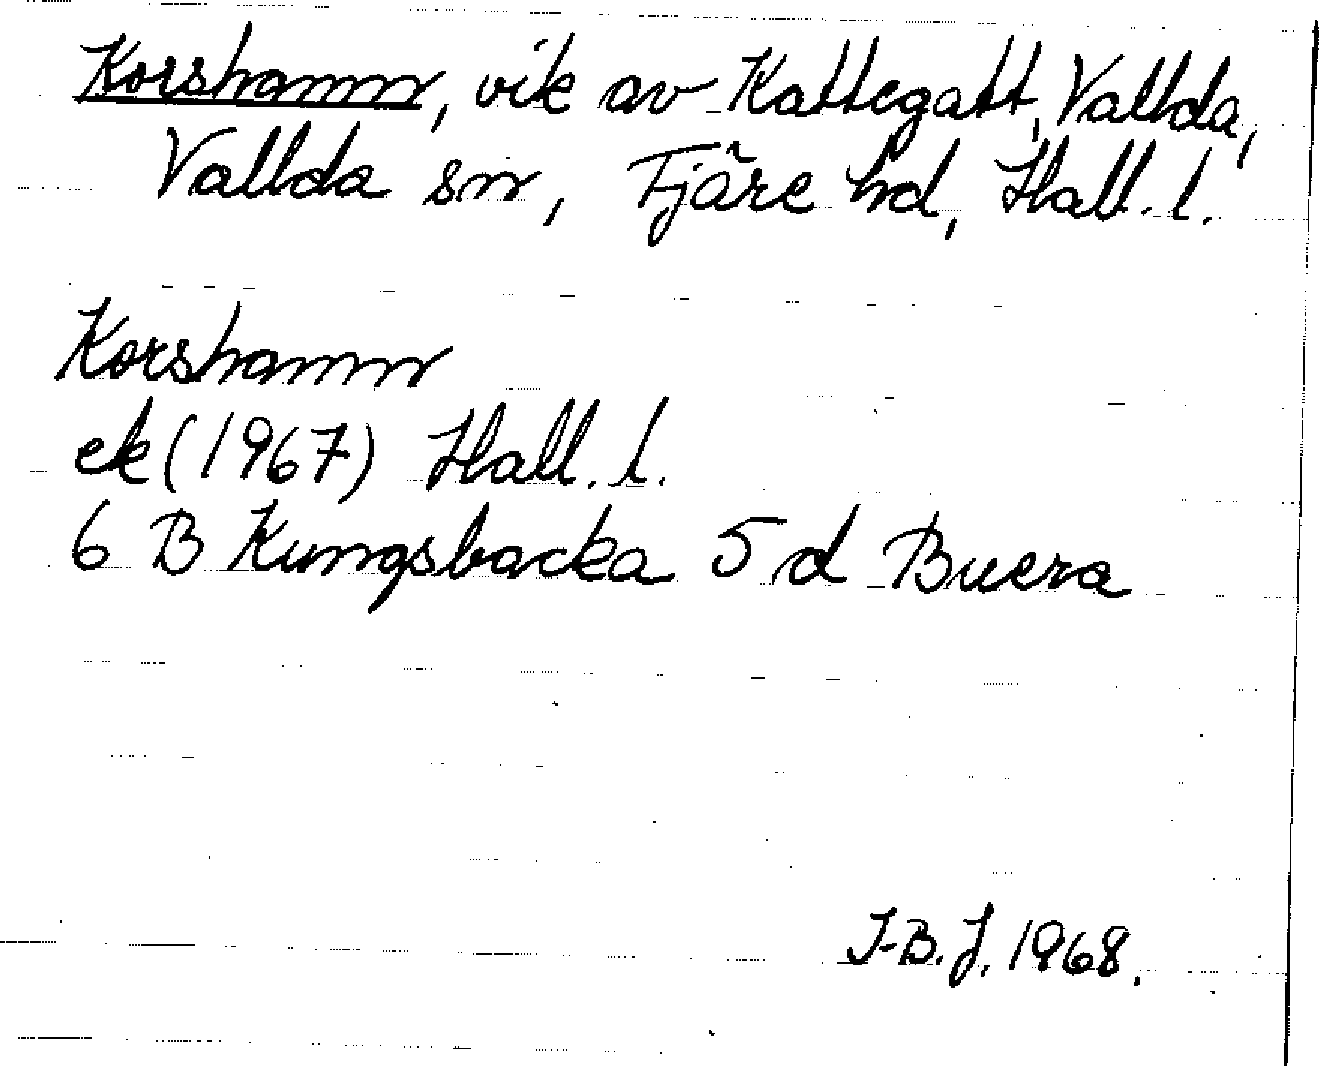 Korshamn, vik av Kattegatt, Vallda,
Vallda sn, Fjäre hd, Hall. l.
Korshamn
ek (1967) Hall. l.
6 B Kungsbacka 5 d Buera
I-B. J. 1968.